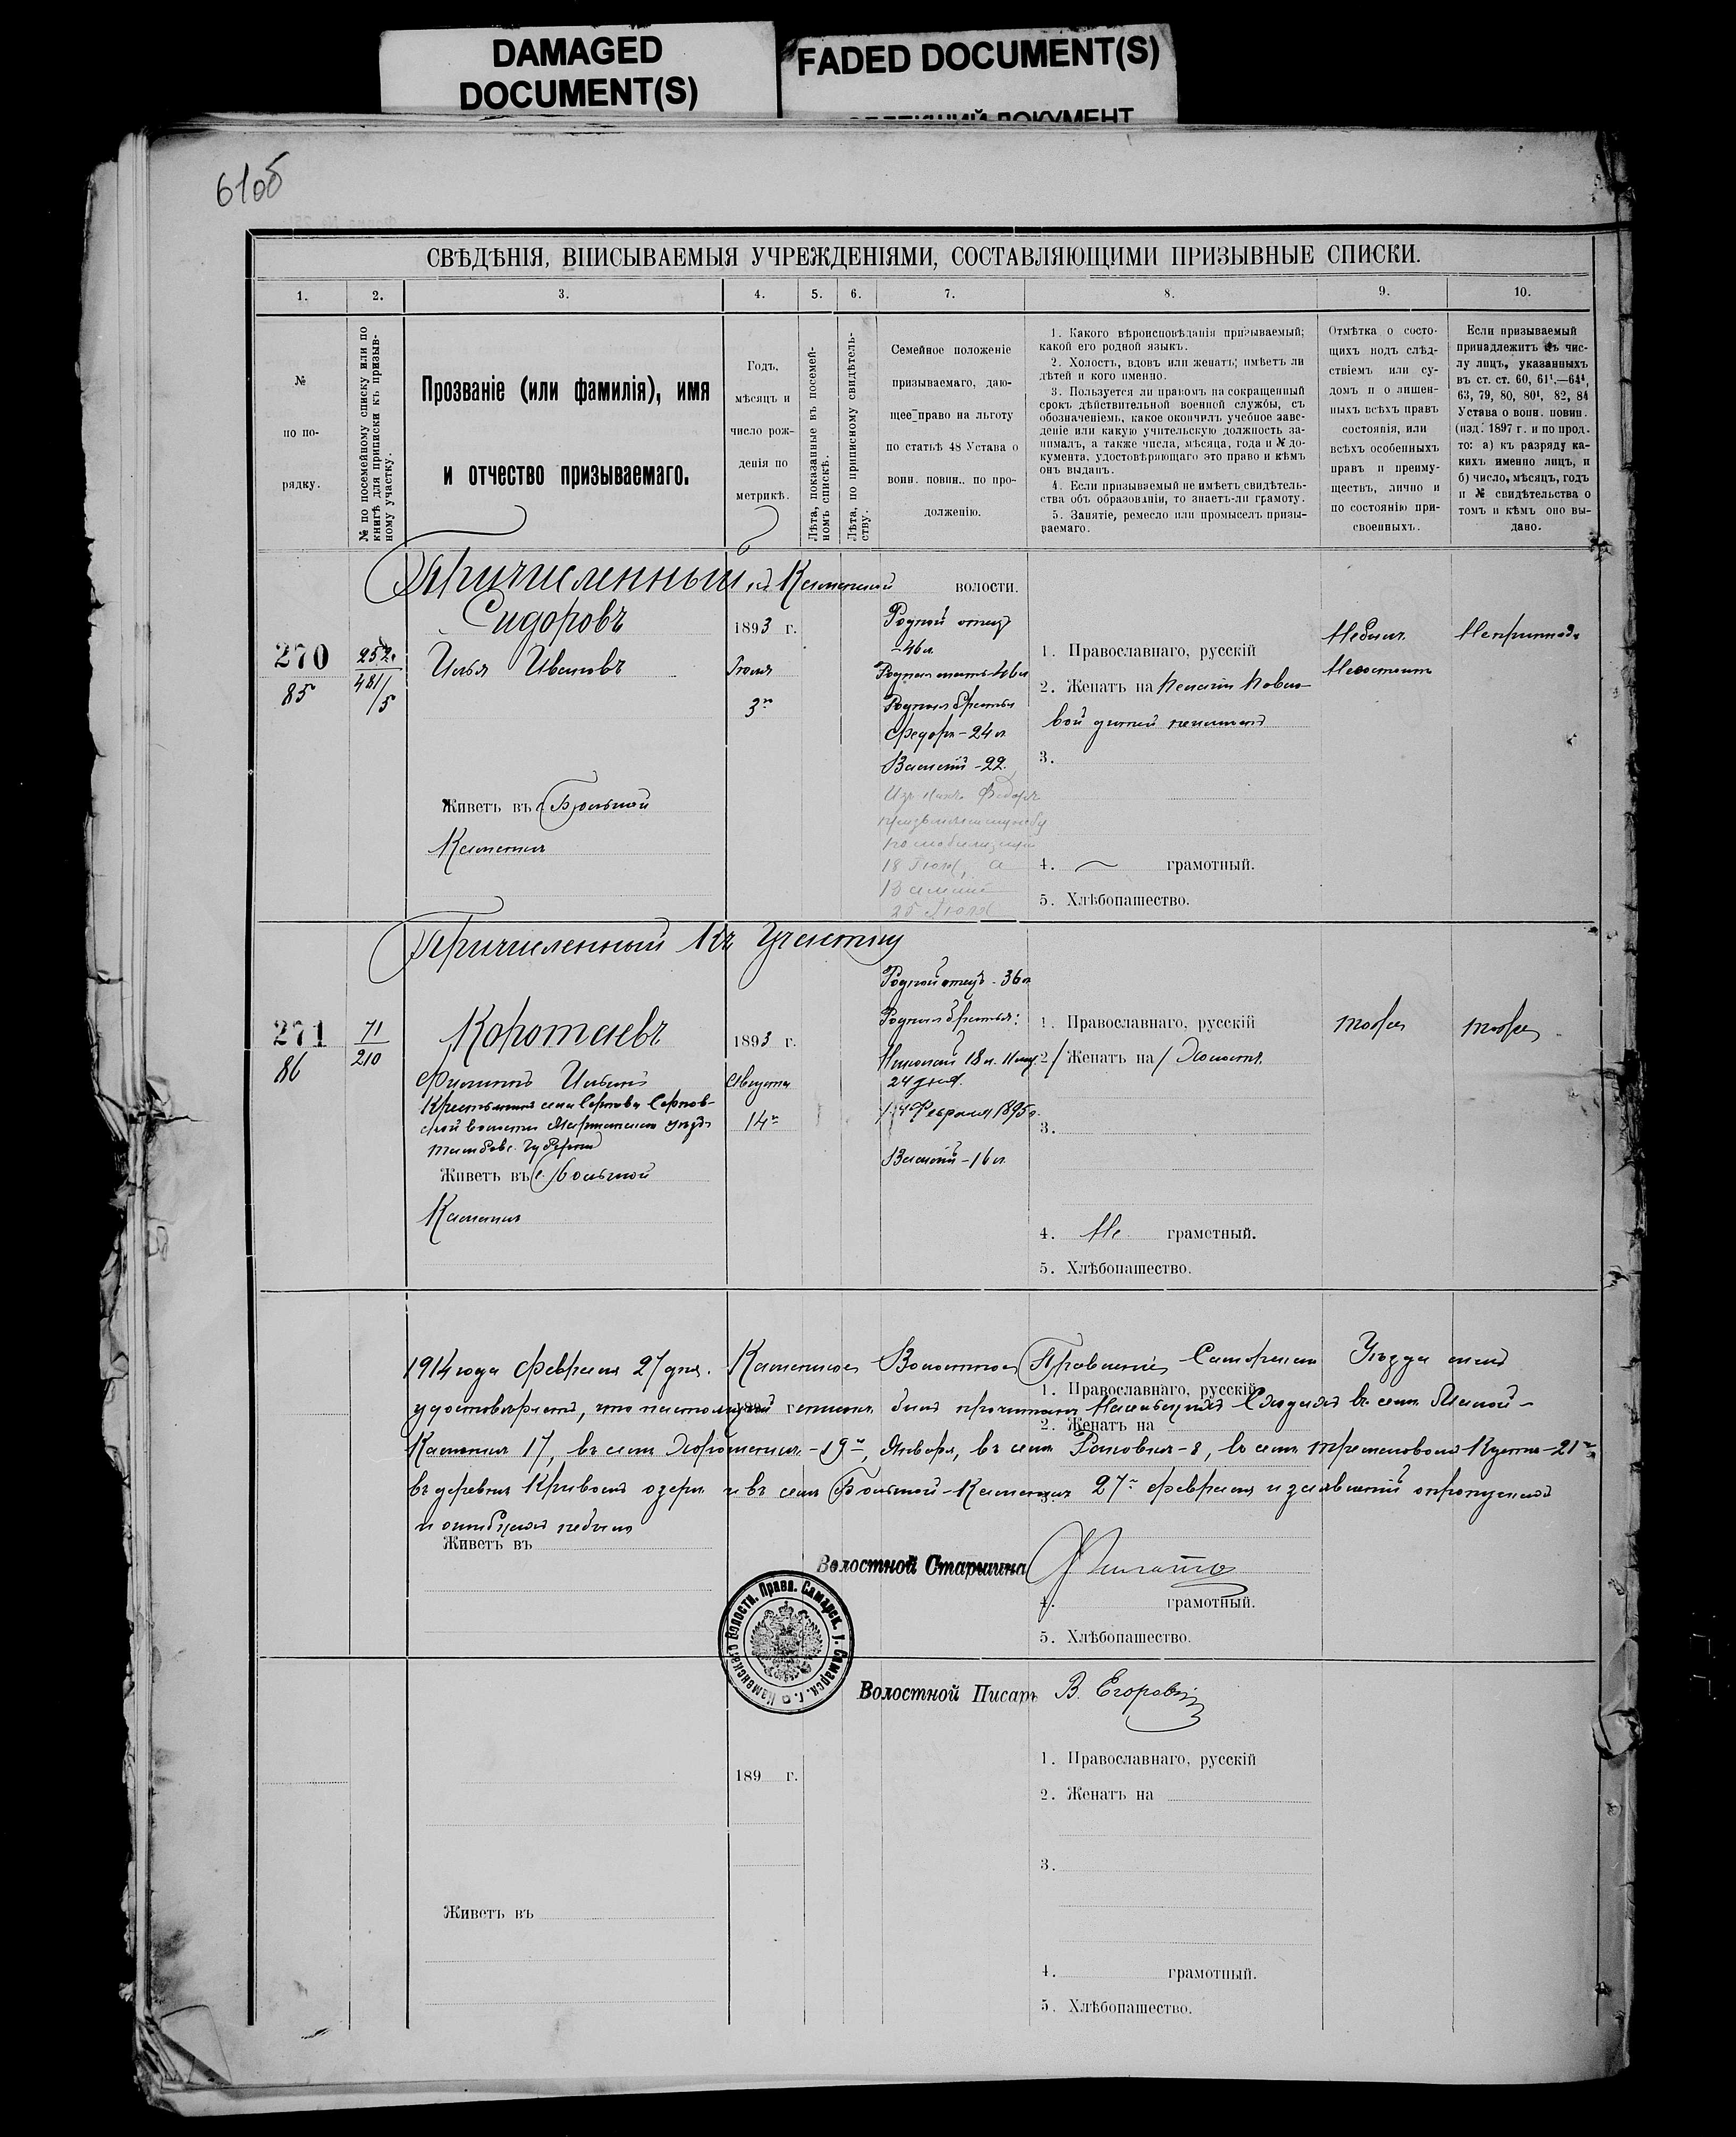 DAMAGED
DOCUMENT(S)
FADED DOCUMENT(S)
ДОКУМЕНТ
61об
СВѢДѢНІЯ, ВПИСЫВАЕМЫЯ УЧРЕЖДЕНІЯМИ, СОСТАВЛЯЮЩИМИ ПРИЗЫВНЫЕ СПИСКИ.
1. 2. 3. 4. 5. 6. 7. 8. 9. 10.
№
по по-
рядку.
№ по посемейному списку или по
книгѣ для приписки къ призыв-
ному участку.
Прозваніе (или фамилія), имя
и отчество призываемаго.
Годъ,
мѣсяцъ и
число рож-
денія по
метрикѣ.
Лѣта, показанные въ посемей-
номъ спискѣ.
Лѣта, по приписному свидѣтель-
ству.
Семейное положеніе
призываемаго, даю-
щее право на льготу
по статьѣ 48 Устава о
воин. повин.. по про-
долженію.
1. Какого вѣроисповѣданія призываемый;
какой его родной языкъ.
2. Холостъ, вдовъ или женатъ; имѣетъ ли
дѣтей и кого именно.
3. Пользуется ли правомъ на сокращенный
срокъ дѣйствительной военной службы, съ
обозначеніемъ, какое окончилъ учебное заве-
деніе или какую учительскую должность за-
нималъ, а также числа, мѣсяца, года и № до-
кумента, удостовѣряющаго это право и кѣмъ
онъ выданъ.
4. Если призываемый не имѣетъ свидѣтель-
ства объ образованіи, то знаетъ-ли грамоту.
5. Занятіе, ремесло или промыселъ призы-
ваемаго.
Отмѣтка о состо-
щихъ подъ слѣд-
ствіемъ или су-
домъ и о лишен-
ныхъ всѣхъ правъ
состоянія, или
всѣхъ особенныхъ
правъ и преиму-
ществъ, лично и
по состоянію при-
своенныхъ.
Если призываемый
принадлежитъ къ чис-
лу лицъ, указанныхъ
въ ст. ст. 60, 61¹.—64⁴,
63, 79, 80, 80¹, 82, 84
Устава о воин. повин.
(изд. 1897 г. и по прод.
то: а) къ разряду ка-
кихъ именно лицъ, и
б) число, мѣсяцъ, годъ
и № свидѣтельства о
томъ и кѣмъ оно вы-
дано.
Причисленный къ Каменской волости.
270
85
252
481/5
Сидоровъ
Илья Ивановъ
Живетъ въ с. Большой
Каменкѣ
1893 г.
Іюля
3го
Родной отецъ
-46 л.
Родная мать 46 л
Родныя братья
Федоръ - 24 л
Василій - 22.
Изъ нихъ Федоръ
по мобилизаціи
18 Іюля, а
Василій
25 Іюля
1. Православнаго, русскій
2. Женатъ на Пелагіи Павло-
вой дѣтей неимѣетъ
3.
4. грамотный.
5. Хлѣбопашество.
Небылъ
Несостоитъ
Непринад.
Причисленный къ участку
271
86
71
210
Коротаевъ
Филиппъ Ильинъ
Крестьянинъ села Серпова Серпов-
ской волости Моршанскаго уѣзд.
Тамбовс. Губерніи
Живетъ въ с. Большой
Каменкѣ
1893 г.
Августа
14го
Родной отецъ - 36 л
Родныя братья:
Николай 18 л. 11 мѣс.
24 дней.
/ 4 Февраля 1895 г.
Василій - 16 л
1. Православнаго, русскій
2. / Женатъ на / Холостъ.
3.
4. Не грамотный.
5. Хлѣбопашество.
тоже
тоже
1914 года февраля 27 дня. Каменское Волостное Правленіе Самарскаго Уѣзда симъ
1. Православнаго, русскій
удостовѣряетъ, что настоящій списокъ былъ прочитанъ на сельскихъ сходахъ въ селѣ Малой-
2. Женатъ на
Каменкѣ 17, въ селѣ Хорошенькѣ - 19го, Января, въ селѣ Раковкѣ - 8, въ селѣ Тремасовомъ Кустѣ - 21го
въ деревнѣ Кривомъ озерѣ и въ селѣ Большой-Каменкѣ 27го февраля и заявленій о пропускахъ
3.
и ошибкахъ небыло
Живетъ въ
Волостной Старшина
4. грамотный.
5. Хлѣбопашество.
Каменскаго Волостн. Правл. Самарск. у. Самарск. г.
Волостной Писарь В. Егоровъ
189 г.
Живетъ въ
1. Православнаго, русскій
2. Женатъ на
3.
4. грамотный.
5. Хлѣбопашество.